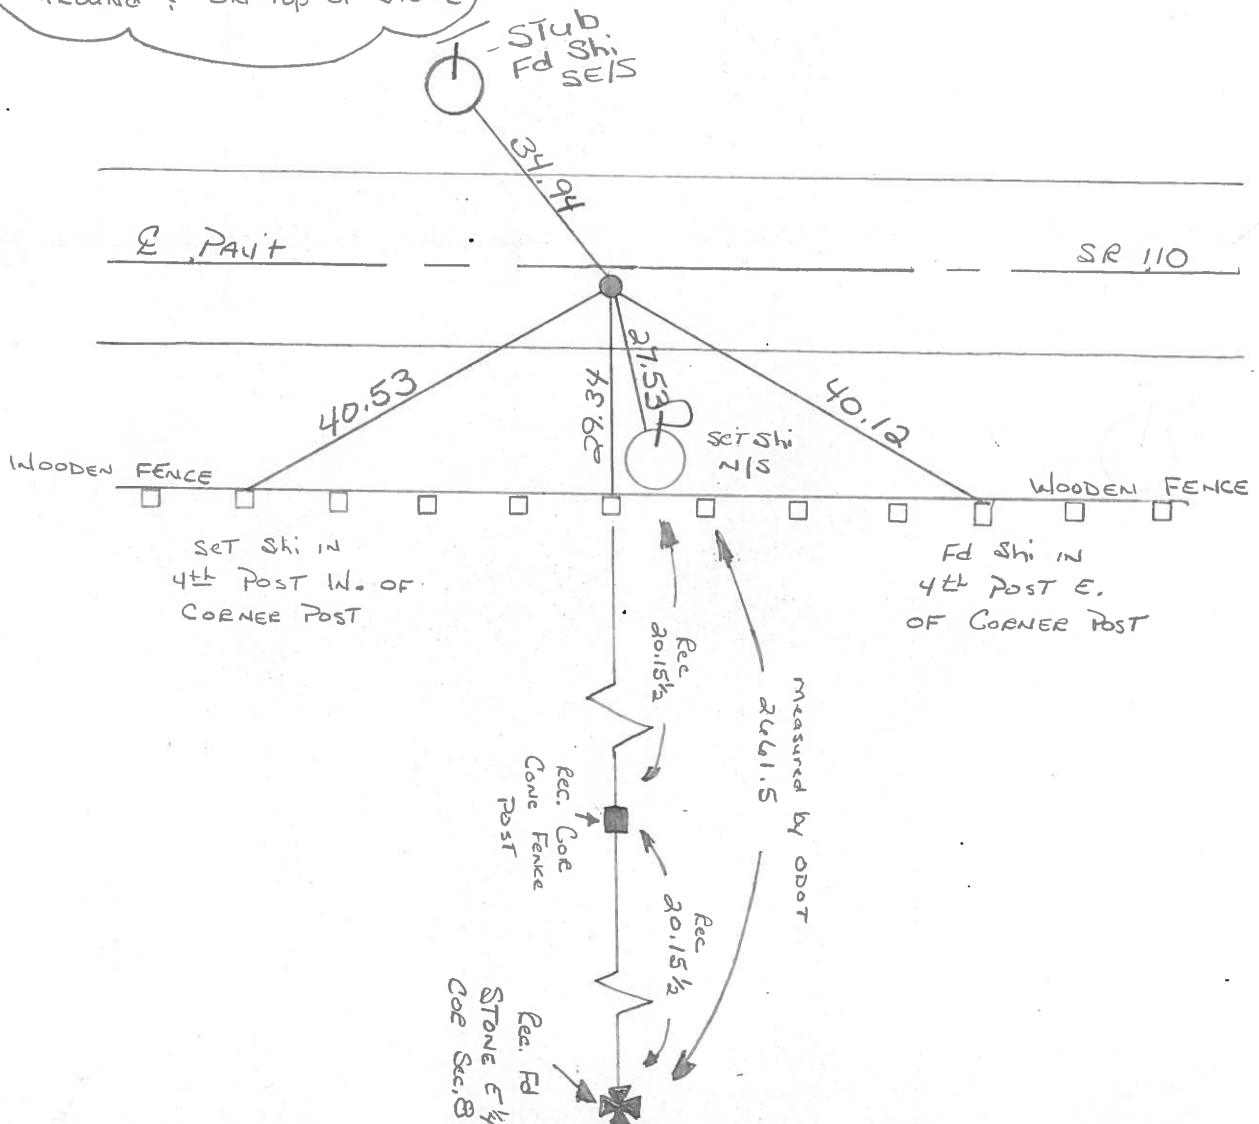 Top of
STUB
Fd Shi
SE/S
34.94
℄ PAV't
SR 110
40.53
29.34
27.53
40.12
Set Shi
N/S
WOODEN FENCE
WOODEN FENCE
SET Shi IN
4th POST W. OF
CORNER POST
Fd Shi IN
4th POST E.
OF CORNER POST
Rec
20.15½
measured by ODOT
2661.5
Rec. COR
CONC FENCE
POST
Rec
20.15½
Rec. Fd
STONE E ¼
COR Sec. 8